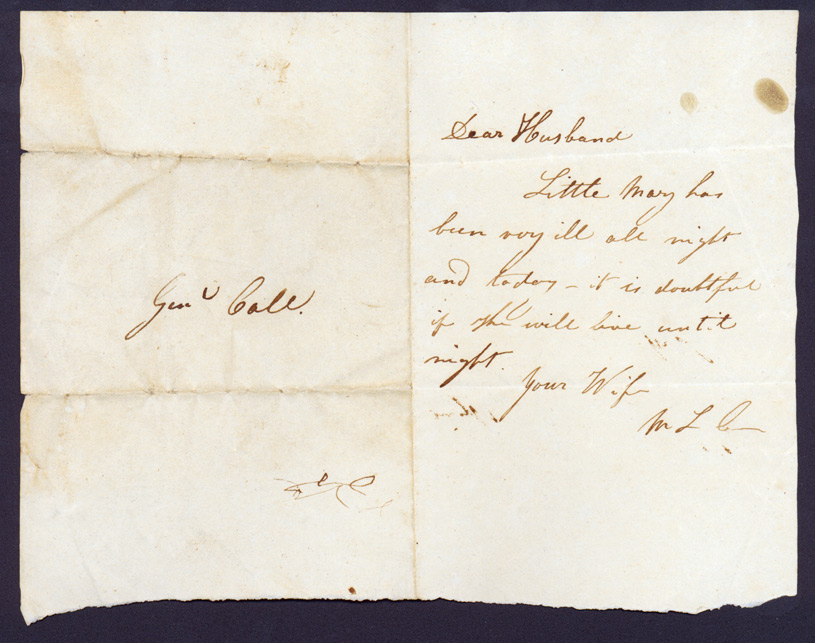 Genl Call.
Dear Husband
Little Mary has
been very ill all night
and today – it is doubtful
if she will live until
night.
Your Wife
M L C